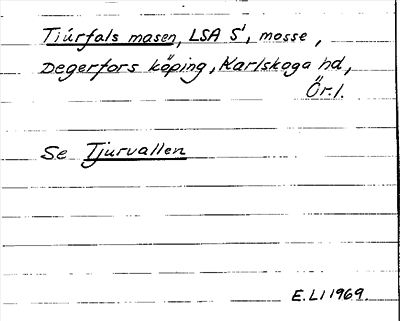 Tiúrfals masen, LSA S', mosse,
Degerfors köping, Karlskoga hd,
Ör.l.
Se Tjurvallen
E.LI 1969.